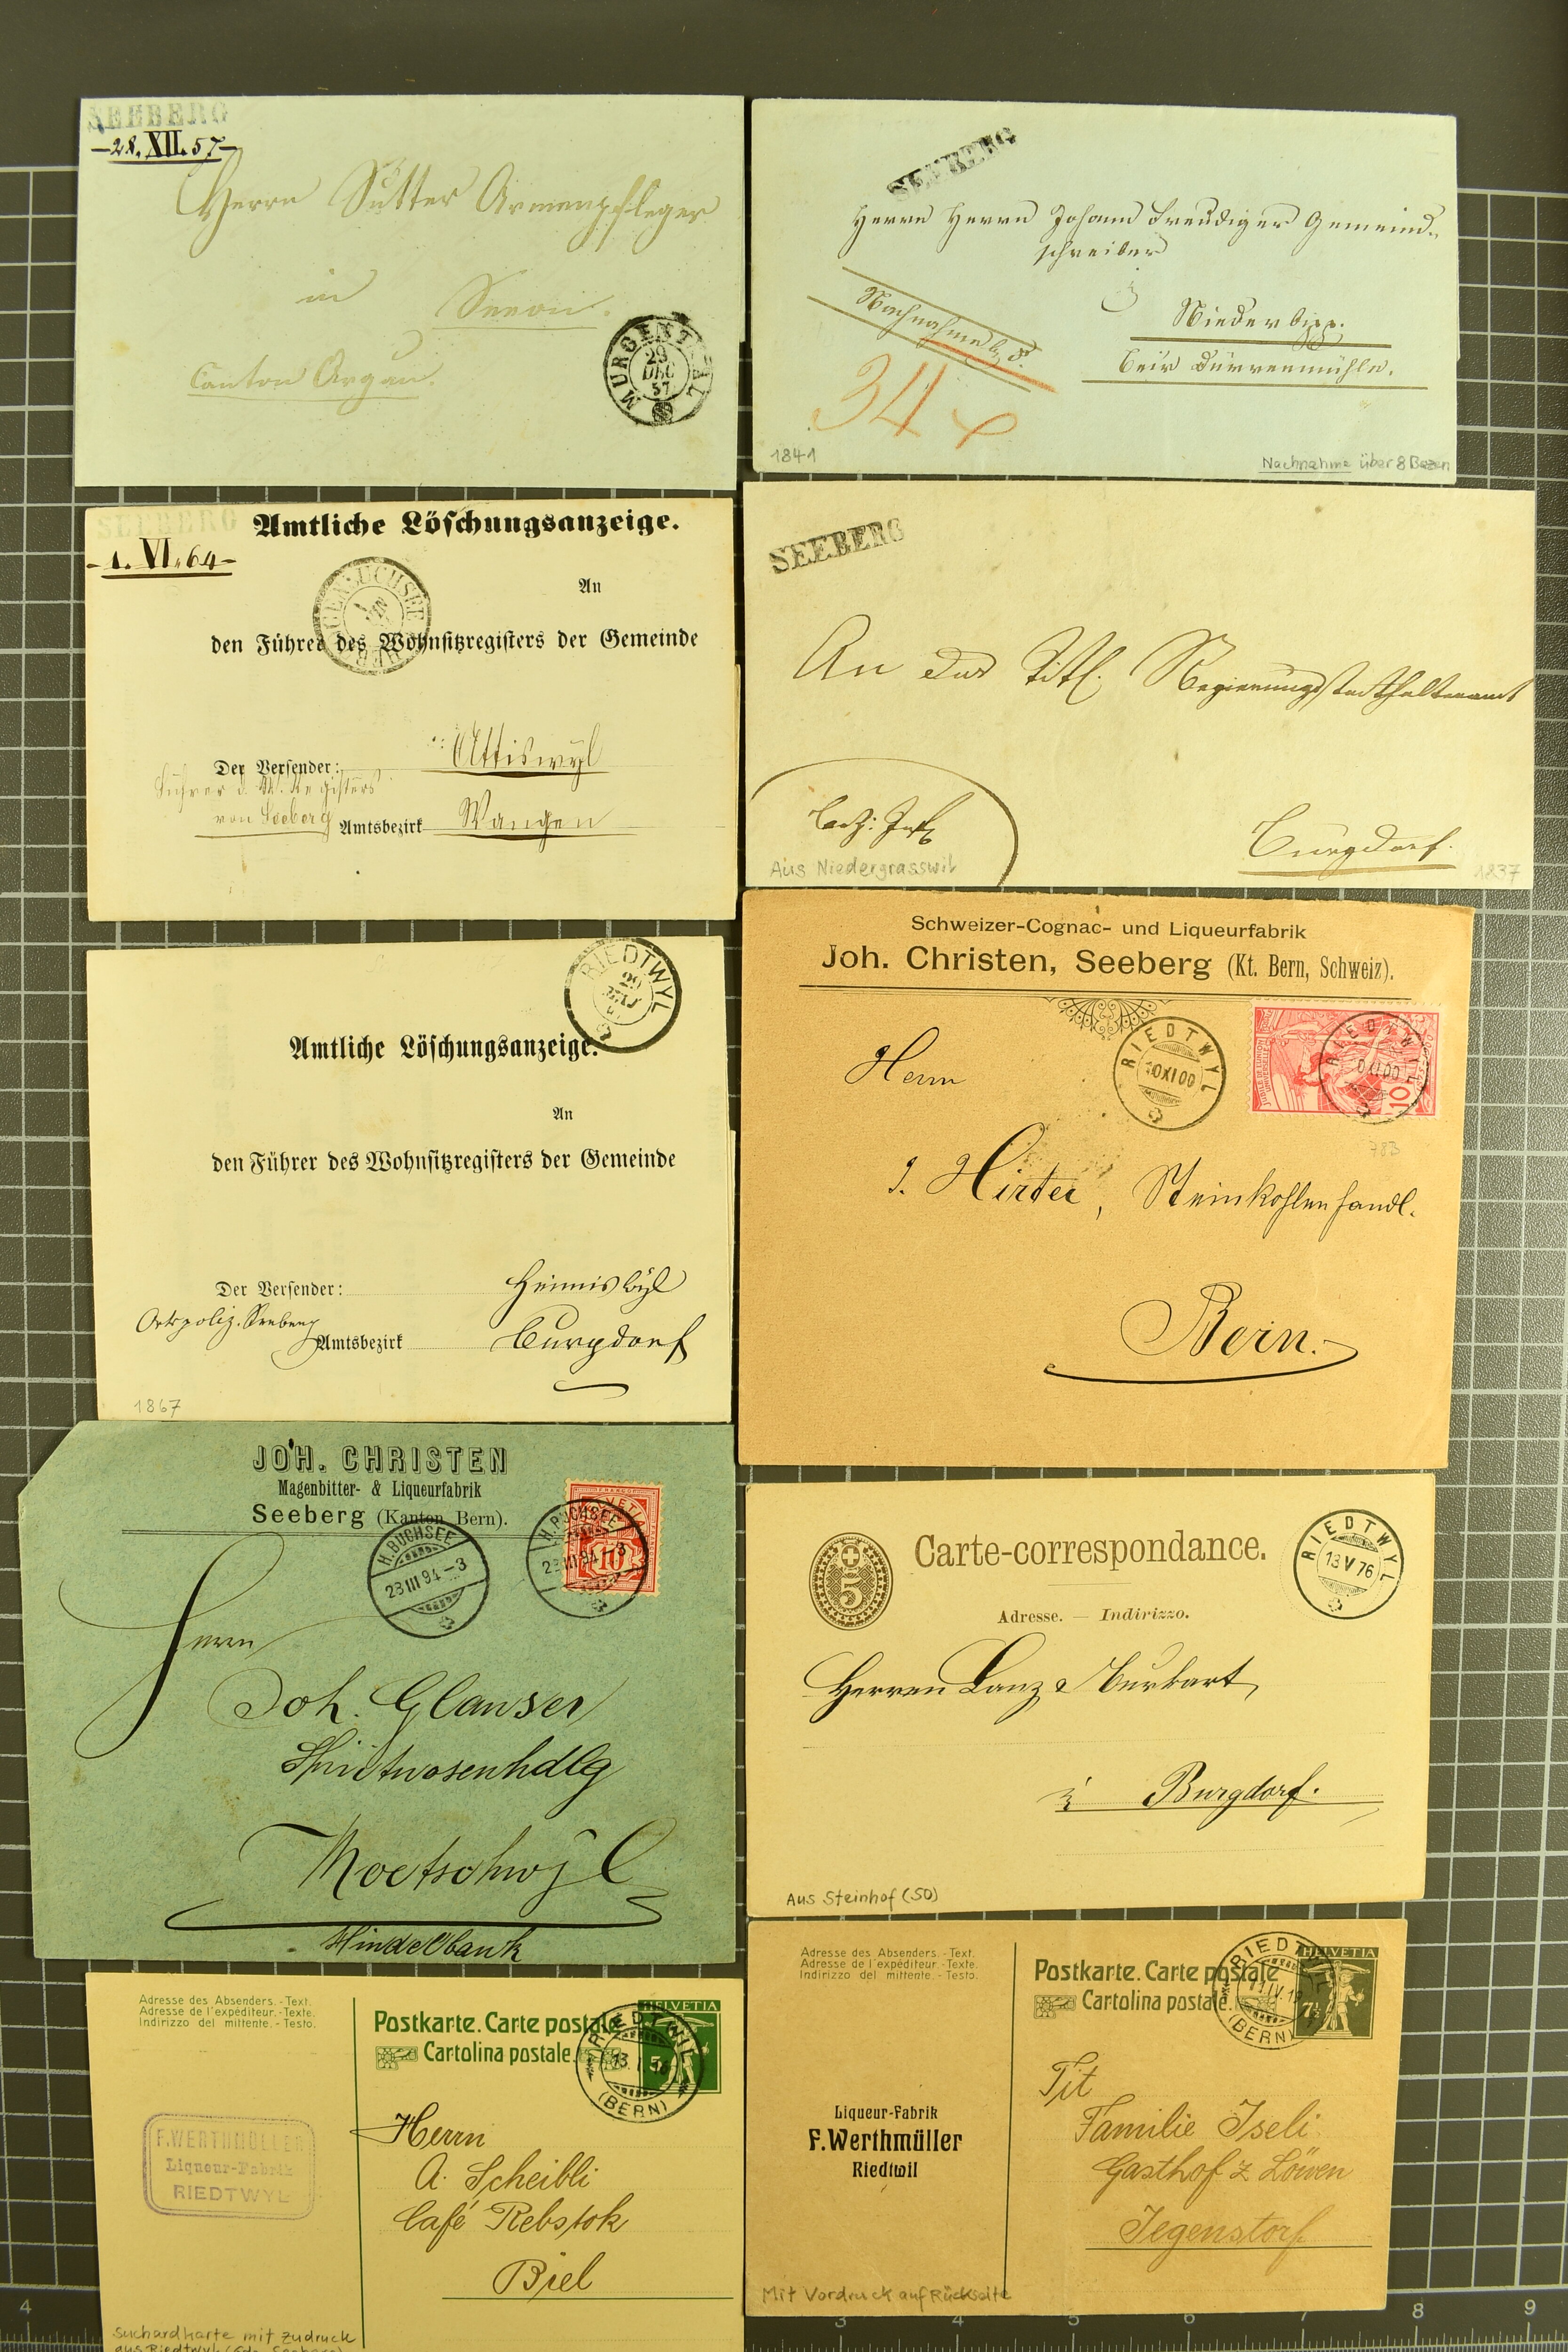 SEEBERG
-28. XII. 57-
Herrn Sutter Armenpfleger
in Seeon.
Canton Argau.
MURGENTHAL
29
DEC
57
SEEBERG
Herrn Herrn Johann Freudiger Gemeind-
schreiber
Niederbipp.
beir Dürrenmühle.
Nachnahme bz 8.
34 x
1841
Nachnahme über 8 Bazen
SEEBERG
-1. VI. 64-
Amtliche Löschungsanzeige.
An
den Führer des Wohnsitzregisters der Gemeinde
Attiswyl
Der Versender:
Führer d. W. Registers
von Seeberg
Amtsbezirk Wangen
SEEBERG
An das Titl. Regierungsstatthalteramt
Burgdorf.
Aus Niedergrasswil
1837
RIEDTWYL
29
Amtliche Löschungsanzeige.
An
den Führer des Wohnsitzregisters der Gemeinde
Heimiswyl
Der Versender:
Ortspoliz. Seeberg
Amtsbezirk Burgdorf
1867
Schweizer-Cognac- und Liqueurfabrik
Joh. Christen, Seeberg (Kt. Bern, Schweiz).
RIEDTWYL
10 XI 00
RIEDTWYL
10
783
Herrn
J. Hirter, Steinkohlenhandl.
Bern.
JOH. CHRISTEN
Magenbitter- & Liqueurfabrik
Seeberg (Kanton Bern).
FRANCO
HELVETIA
10
H. BUCHSEE
23 III 94 - 3
H. BUCHSEE
23 III 94 - 3
Herrn
Joh. Glauser
Spirituosenhdlg
Moetschwyl
Hindelbank
5
Carte-correspondance.
RIEDTWYL
13 V 76
Adresse. — Indirizzo.
Herren Lanz & Burkart,
Burgdorf.
Aus Steinhof (SO)
Adresse des Absenders. - Text.
Adresse de l'expéditeur. - Texte.
Indirizzo del mittente. - Testo.
Postkarte. Carte postale
Cartolina postale.
HELVETIA
5
RIEDTWIL
13. I.
(BERN)
F. WERTHMÜLLER
Liqueur-Fabrik
RIEDTWYL
Herrn
A. Scheibli
Café Rebstok
Biel
Suchardkarte mit Zudruck
Adresse des Absenders. - Text.
Adresse de l'expéditeur. - Texte.
Indirizzo del mittente. - Testo.
Postkarte. Carte postale
Cartolina postale.
HELVETIA
7½
RIEDTWIL
(BERN)
Liqueur-Fabrik
F. Werthmüller
Riedtwil
Tit
Familie Iseli
Gasthof z Löwen
Jegenstorf
Mit Vordruck auf Rückseite
4
3
4
5
6
7
8
9